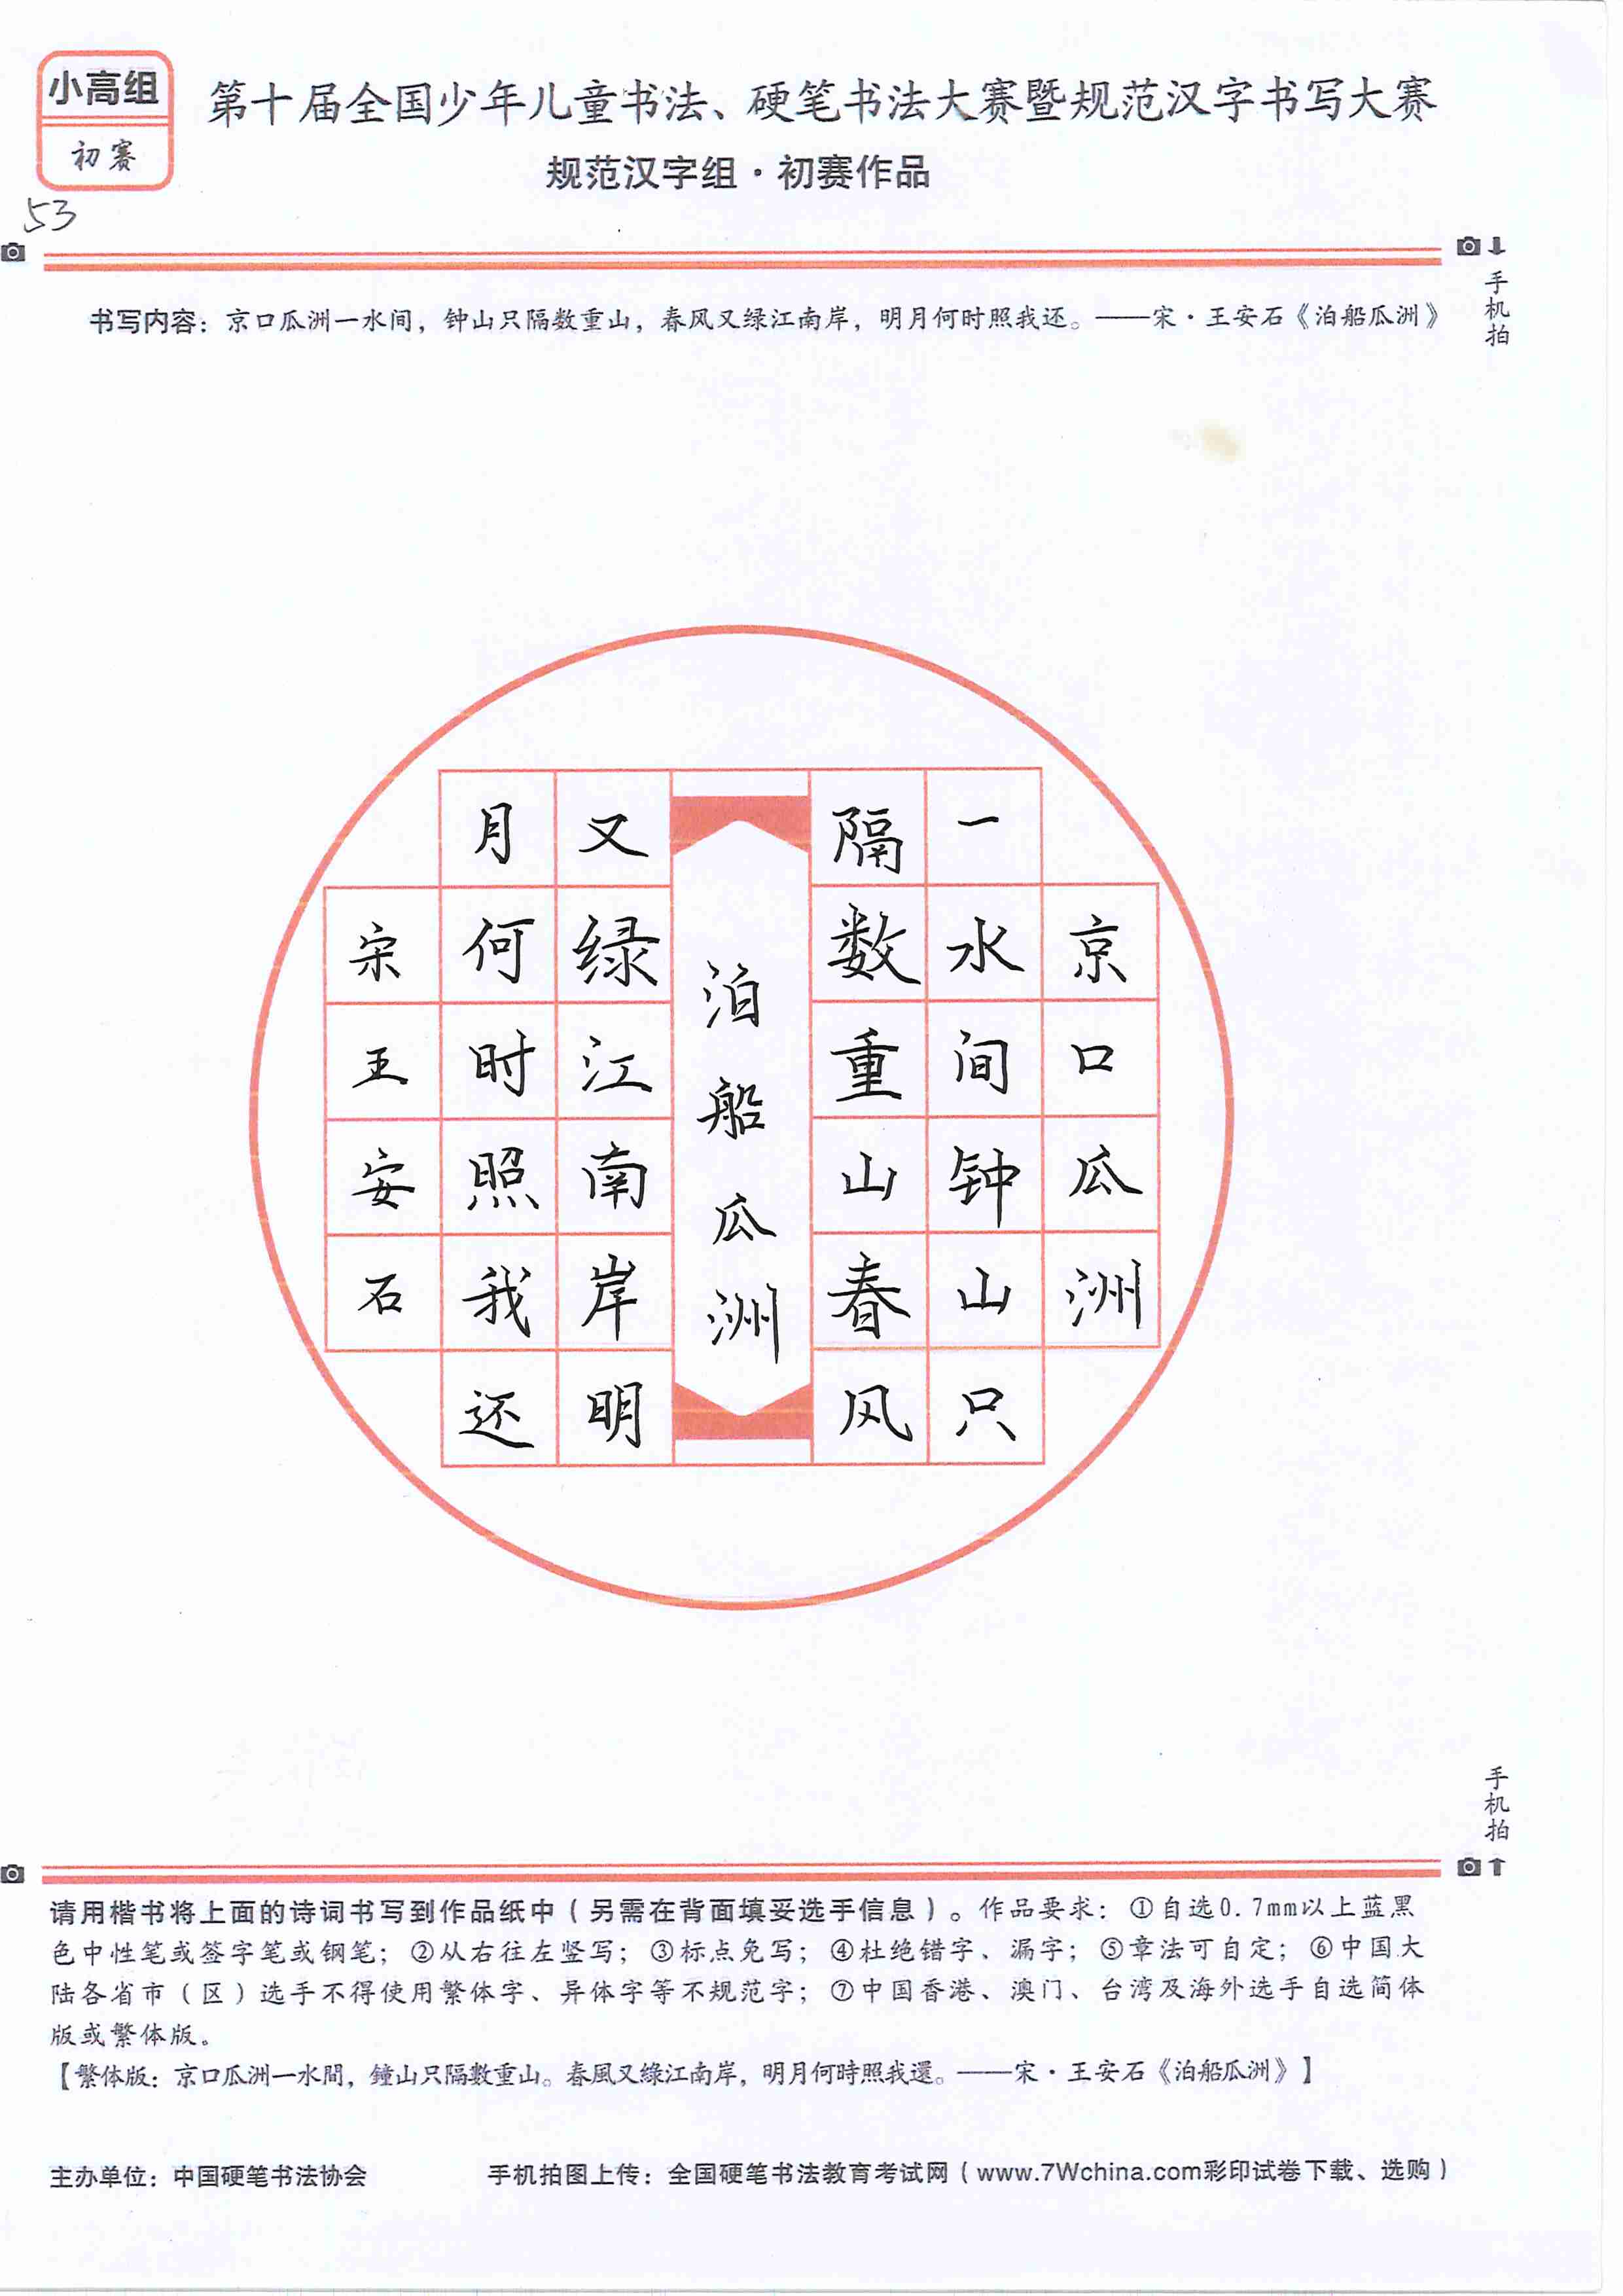 小高组
初赛
53
第十届全国少年儿童书法、硬笔书法大赛暨规范汉字书写大赛
规范汉字组·初赛作品
手机拍
书写内容：京口瓜洲一水间，钟山只隔数重山，春风又绿江南岸，明月何时照我还。——宋·王安石《泊船瓜洲》
京口瓜洲
一水间钟山只
隔数重山春风
泊船瓜洲
又绿江南岸明
月何时照我还
宋王安石
手机拍
请用楷书将上面的诗词书写到作品纸中（另需在背面填妥选手信息）。作品要求：①自选0.7mm以上蓝黑
色中性笔或签字笔或钢笔；②从右往左竖写；③标点免写；④杜绝错字、漏字；⑤章法可自定；⑥中国大
陆各省市（区）选手不得使用繁体字、异体字等不规范字；⑦中国香港、澳门、台湾及海外选手自选简体
版或繁体版。
【繁体版：京口瓜洲一水間，鐘山只隔數重山。春風又綠江南岸，明月何時照我還。——宋·王安石《泊船瓜洲》】
主办单位：中国硬笔书法协会
手机拍图上传：全国硬笔书法教育考试网（www.7Wchina.com彩印试卷下载、选购）